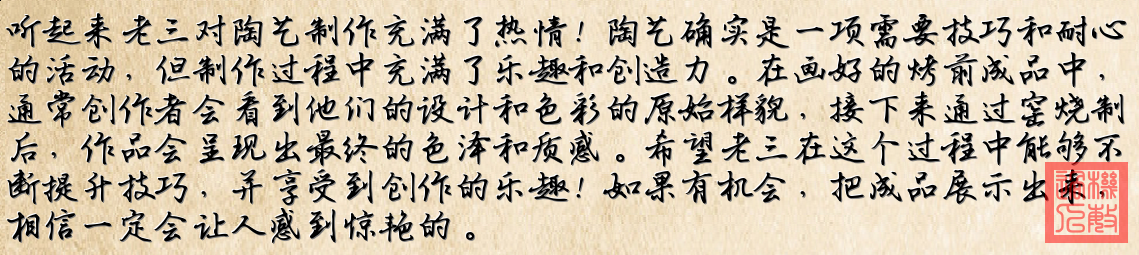 听起来老三对陶艺制作充满了热情！陶艺确实是一项需要技巧和耐心
的活动，但制作过程中充满了乐趣和创造力。在画好的烤前成品中，
通常创作者会看到他们的设计和色彩的原始样貌，接下来通过窑烧制
后，作品会呈现出最终的色泽和质感。希望老三在这个过程中能够不
断提升技巧，并享受到创作的乐趣！如果有机会，把成品展示出来，
相信一定会让人感到惊艳的。